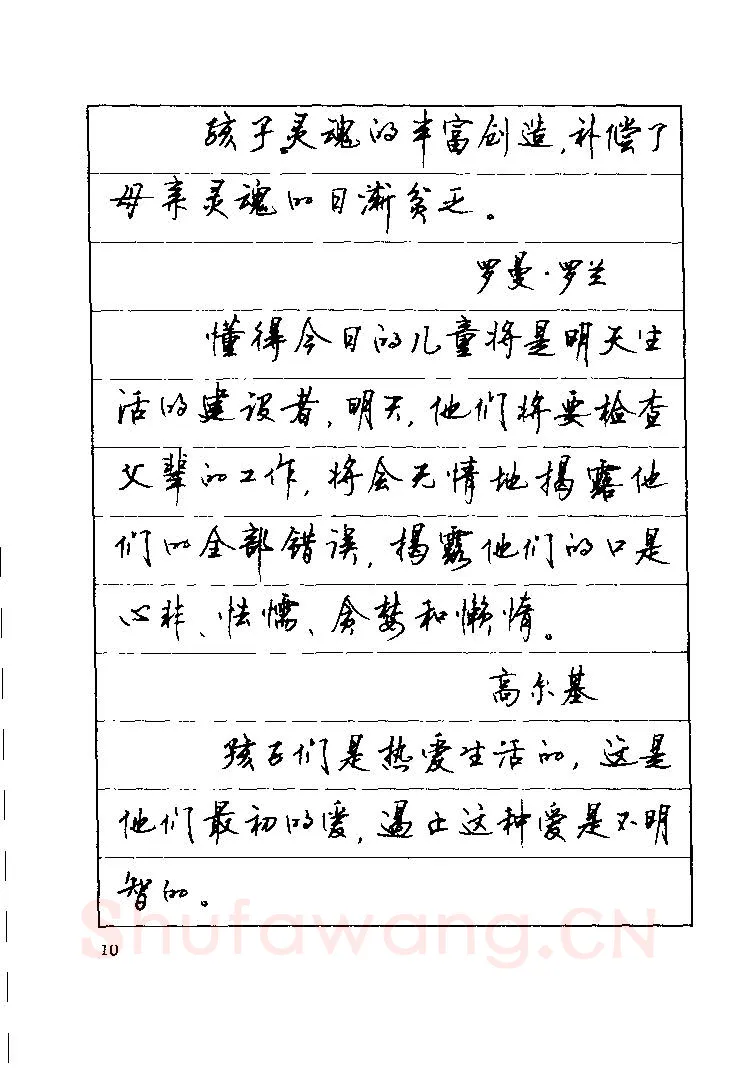 孩子灵魂的丰富创造,补偿了
母亲灵魂的日渐贫乏。
罗曼·罗兰
懂得今日的儿童将是明天生
活的建设者,明天,他们将要检查
父辈的工作,将会无情地揭露他
们的全部错误,揭露他们的口是
心非、怯懦、贪婪和懒惰。
高尔基
孩子们是热爱生活的,这是
他们最初的爱,遏止这种爱是不明
智的。
Shufawang.CN
10